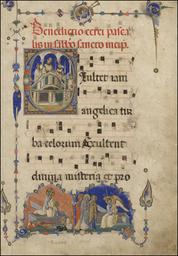 Benedictio cerei pasca
lis in sabbato sancto incip.
Exultet iam
angelica tur
ba celorum Exultent
divina misteria et pro